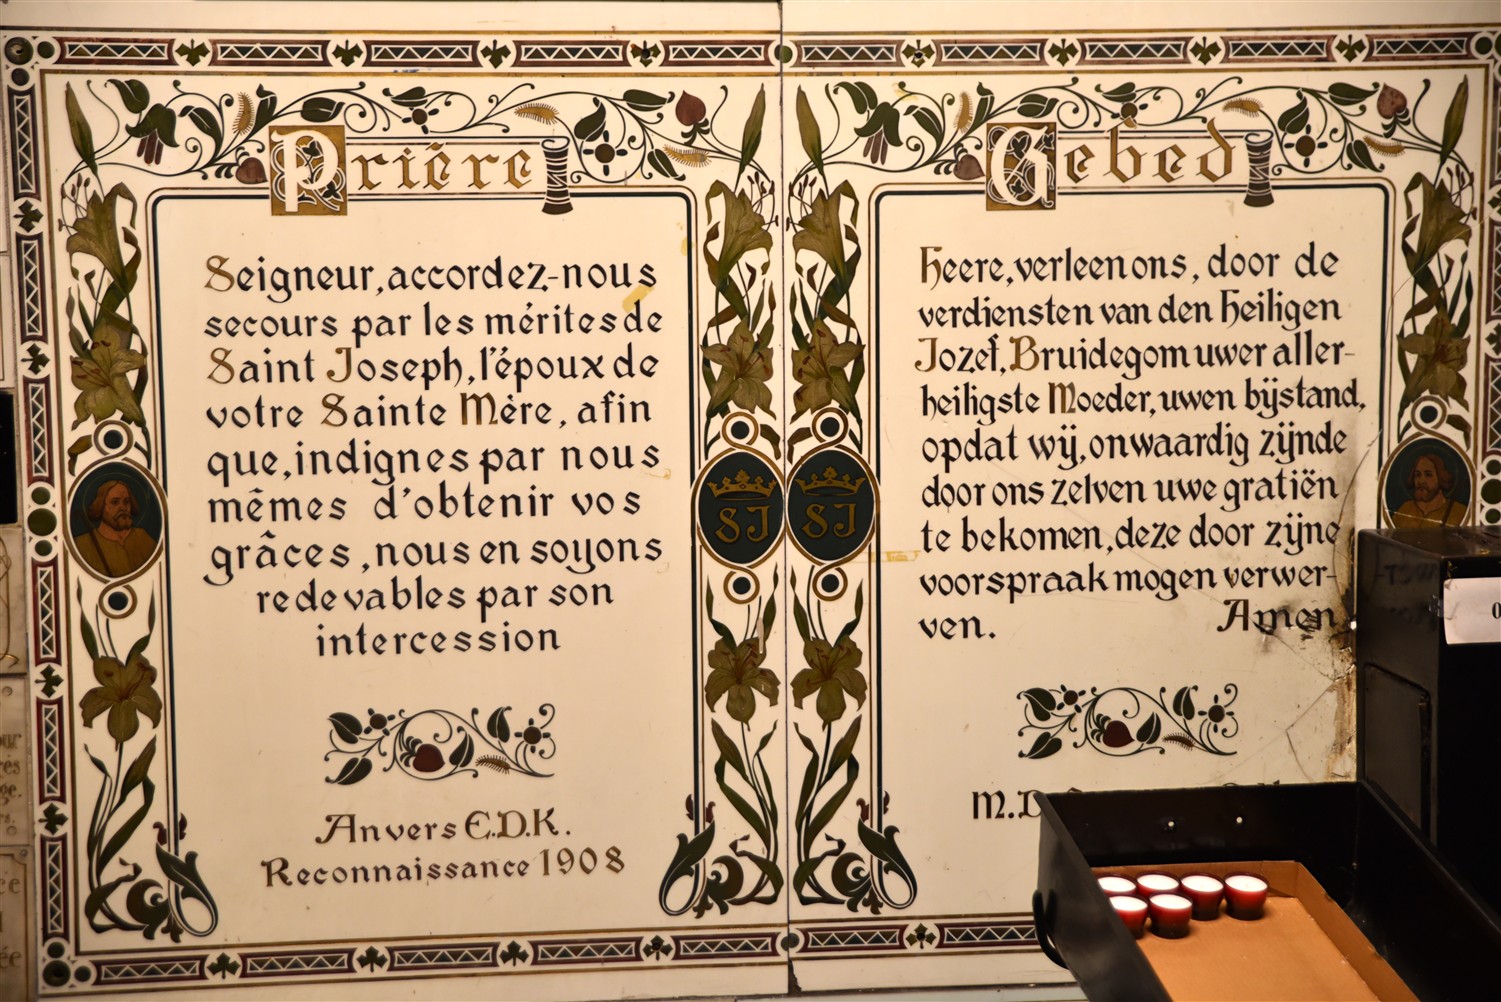 Prière
Seigneur, accordez-nous
secours par les mérites de
Saint Joseph, l'époux de
votre Sainte Mère, afin
que, indignes par nous
mêmes d'obtenir vos
grâces, nous en soyons
redevables par son
intercession
Anvers E.D.K.
Reconnaissance 1908
SJ
SJ
Gebed
Heere, verleen ons, door de
verdiensten van den Heiligen
Jozef, Bruidegom uwer aller-
heiligste Moeder, uwen bijstand,
opdat wij, onwaardig zijnde
door ons zelven uwe gratiën
te bekomen, deze door zijne
voorspraak mogen verwer-
ven.
Amen
M.D